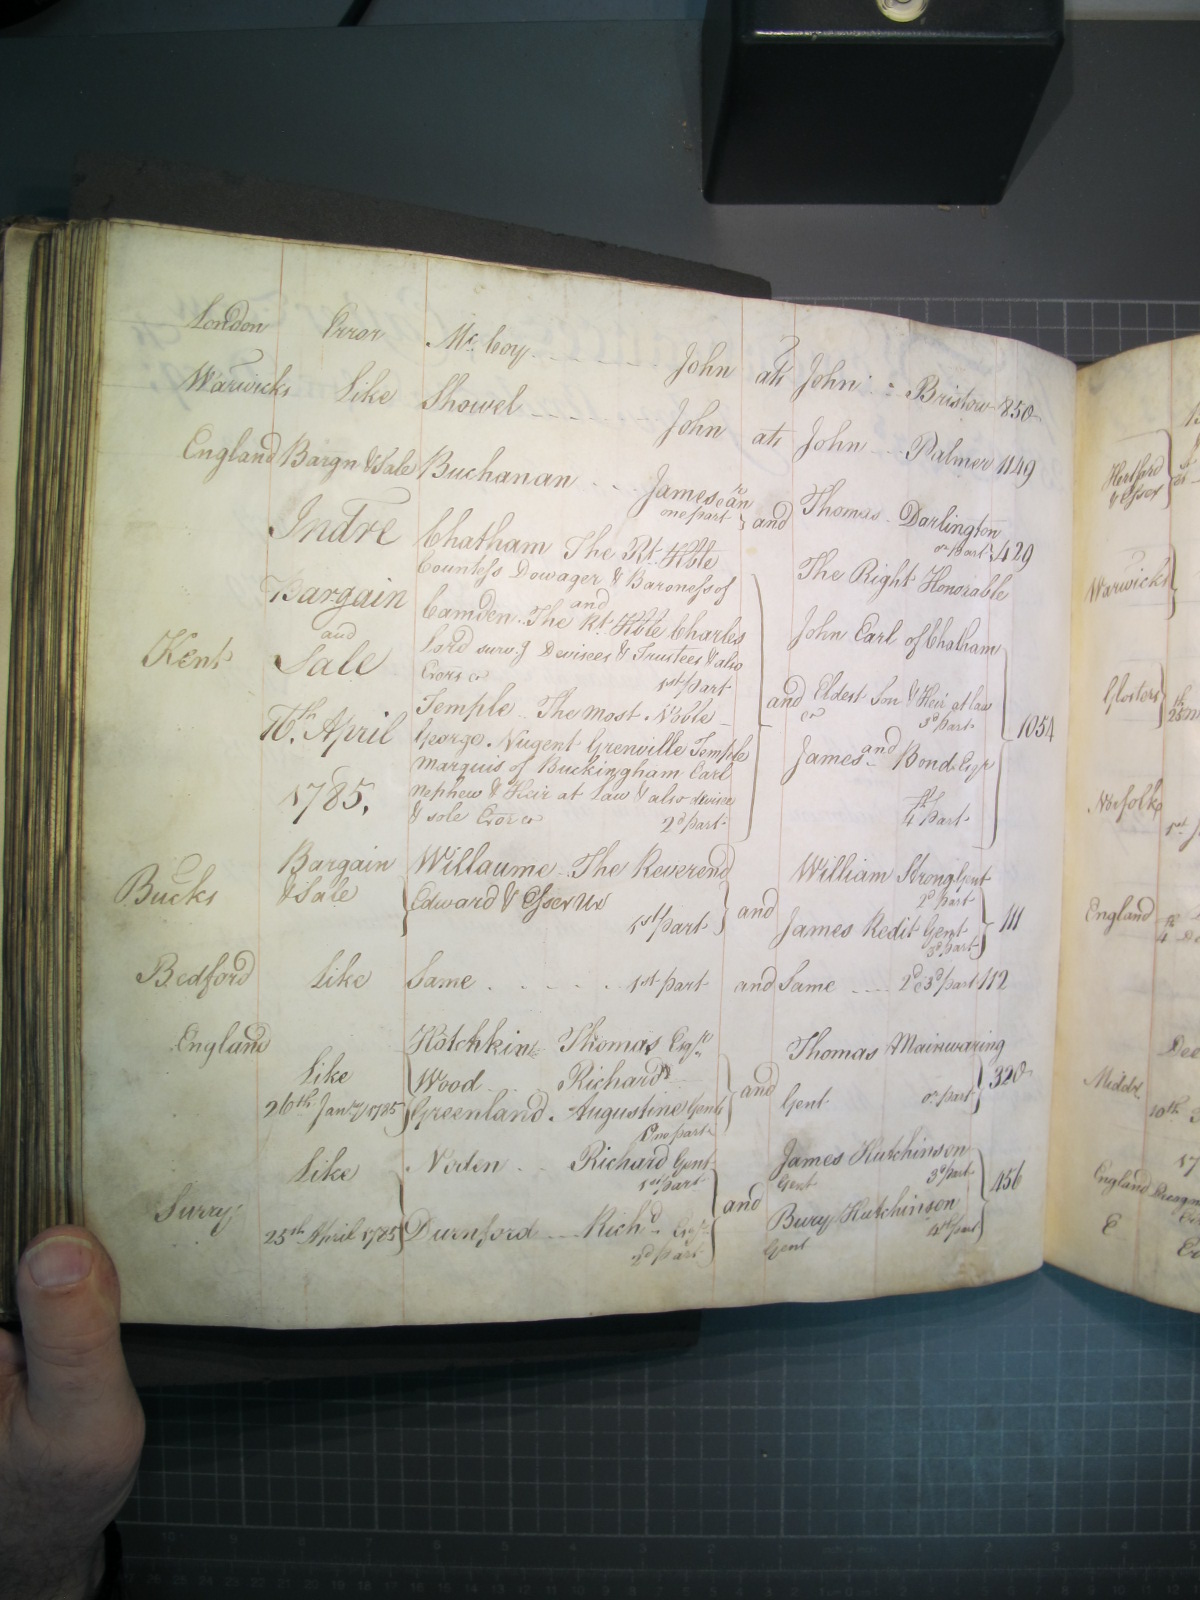 London Error McCoy John ats John Bristow 850
Warwicks Like Showel John ats John Palmer 1149
England Bargn & Sale Buchanan James
one part and Thomas Darlington
or part 429
Indre Chatham The Rt. Hble The Right Honorable
Countess Dowager & Baroness of
Bargain Camden. The Rt. Hble Charles John Earl of Chatham
and
and
Kent Sale Lord surv.g Devisees & Trustees & also
Exors &c 1st part and Eldest Son & Heir at law
&c 3d part 1054
16th. April Temple The Most Noble
George. Nugent Grenville Temple and
Marquis of Buckingham Earl James Bond Esqr
1785. nephew & Heir at Law & also devisee
& sole Exor &c 2d part 4th part
Bargain Willaume The Reverend William Strong Gent
Bucks & Sale Edward & Esser Ux 2d part
1st part and James Redit Gent 111
3d part
Bedford Like Same 1st part and Same 2d & 3d part 112
England Hotchkin Thomas Esqr. Thomas Mainwaring
Like Wood Richard and 320
26th Jany 1785 Greenland. Augustine Gents Gent or part
One part
Like Norden Richard Gent James Hutchinson
1st part Gent 3d part
Surry and 456
25th April 1785 Durnford Richd. Esqr Bury Hutchinson
2d part Gent 4th part
Hertford
& Essex
Warwicks
Glosters
Norfolk
1st
England
4 De
Dec
Middx
10th
17
England
E